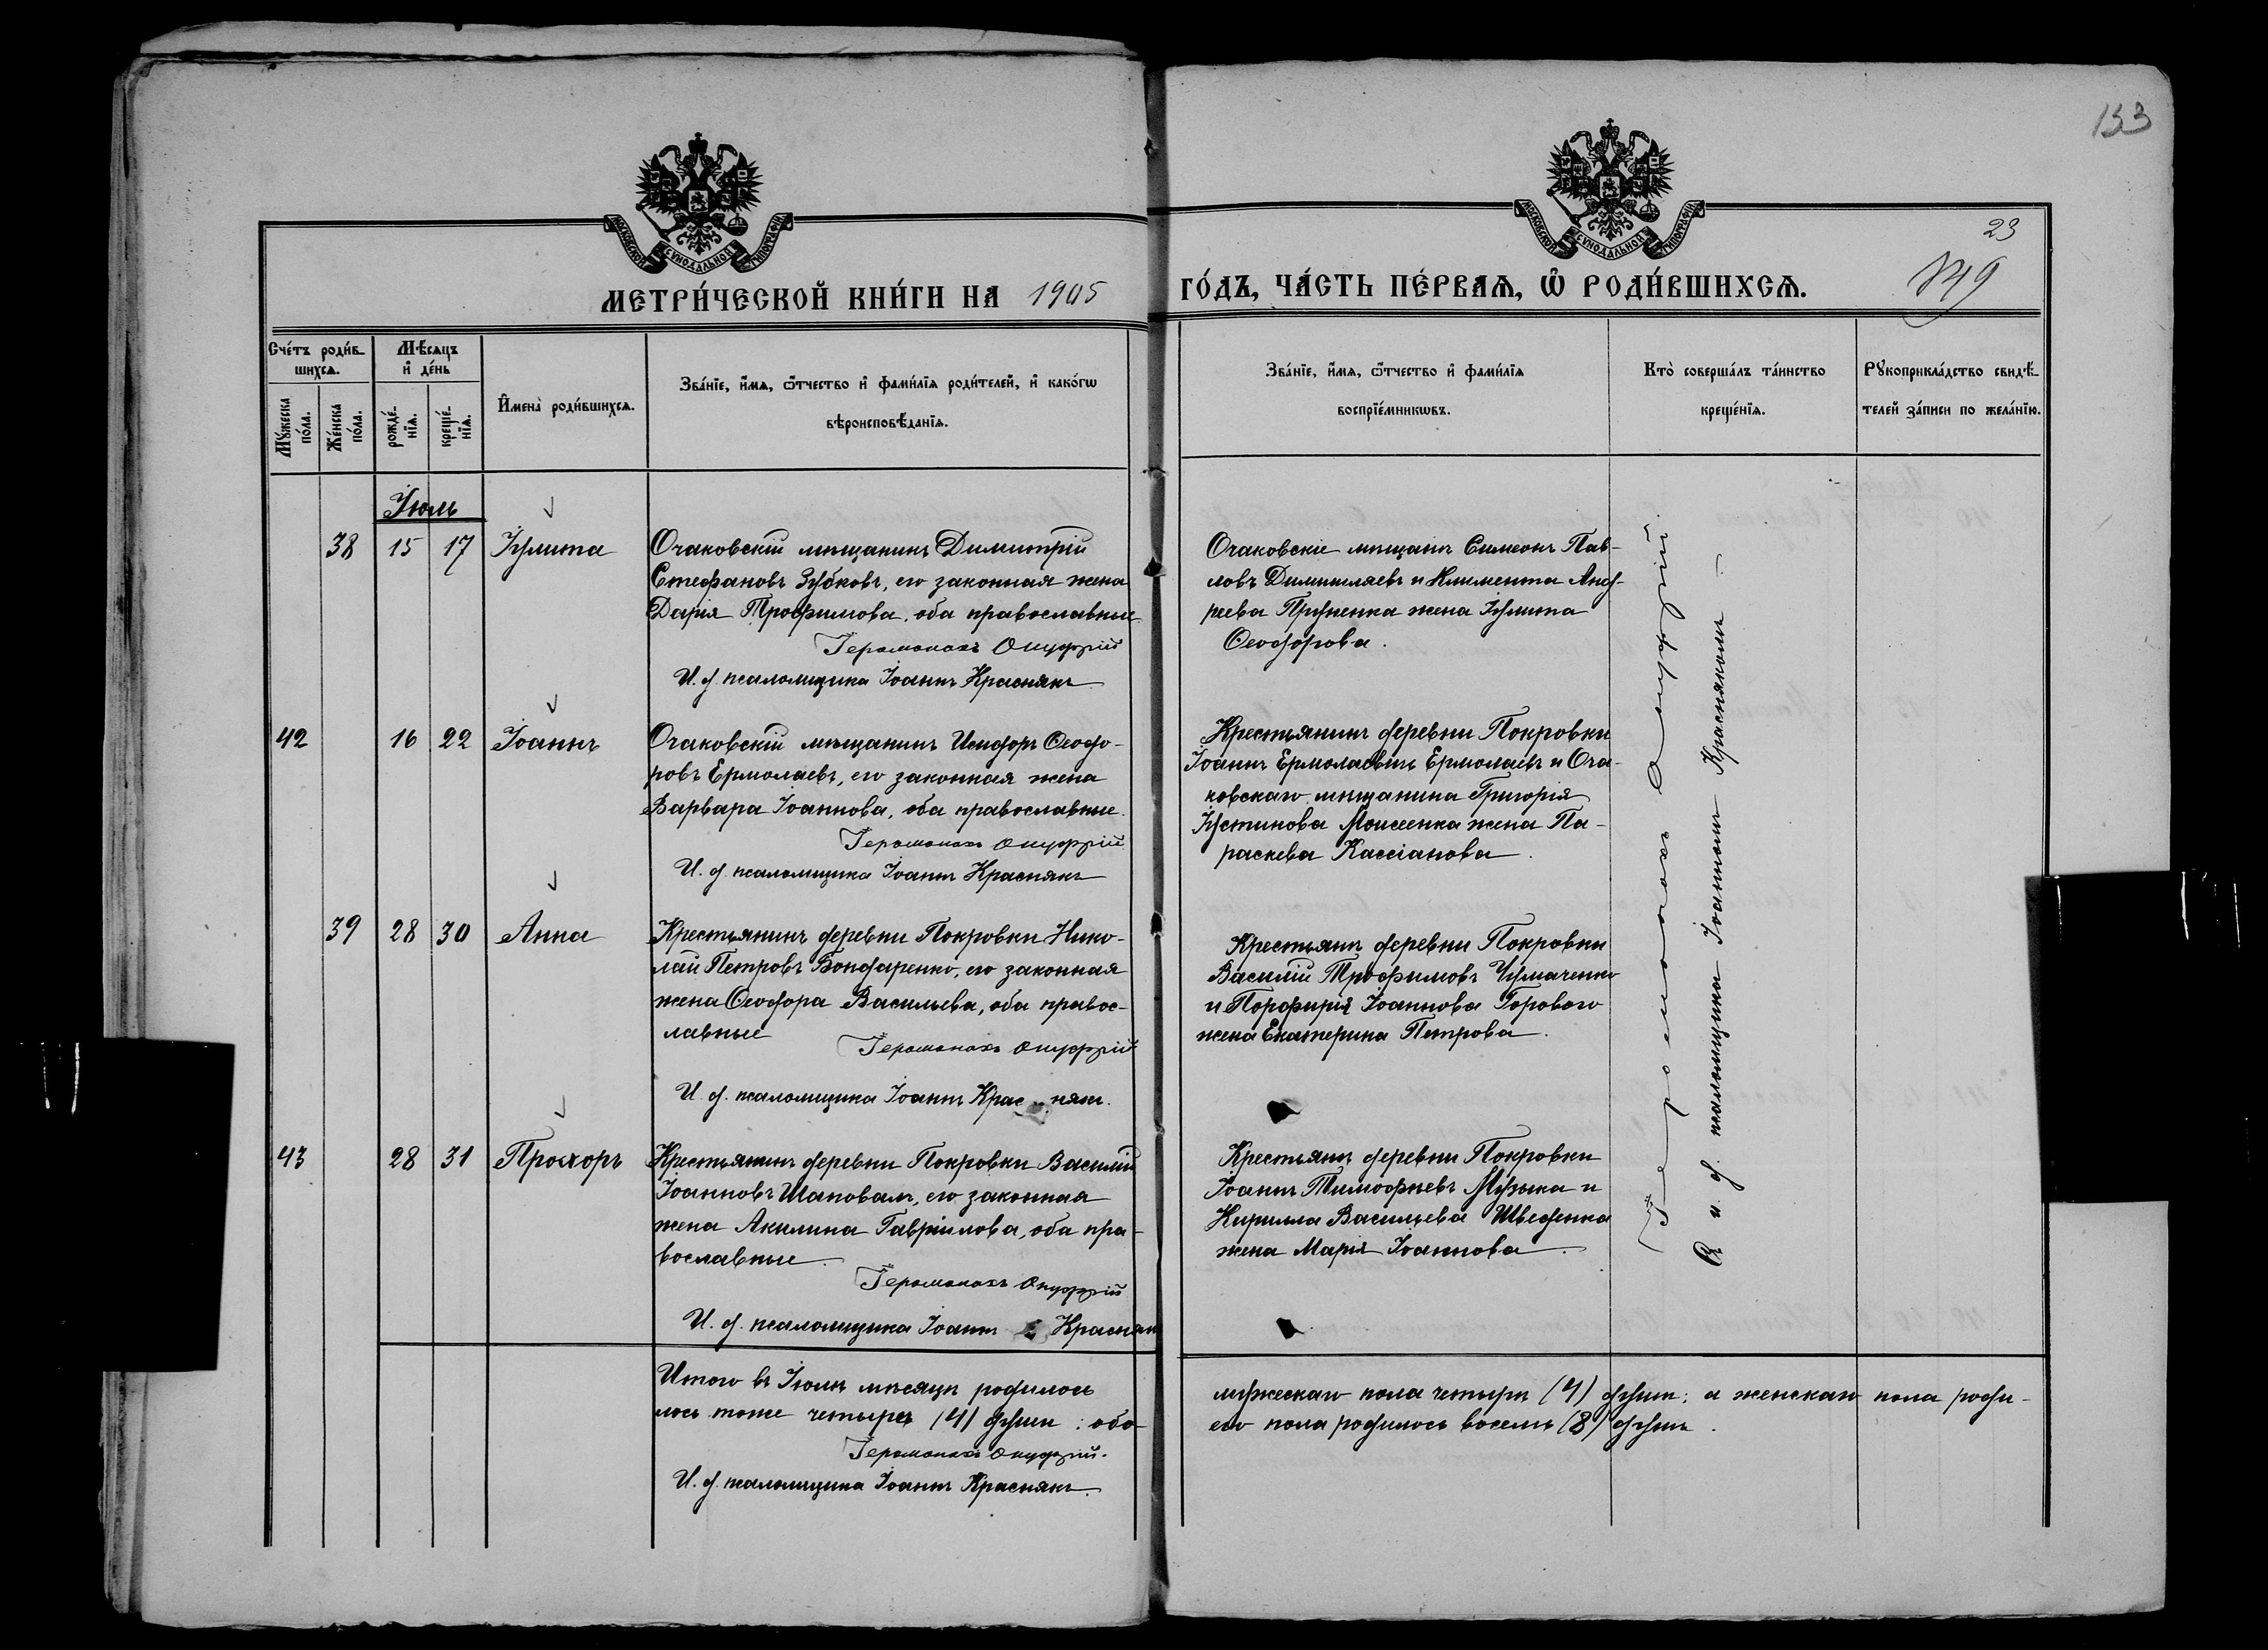 133
23
149
МОСКОВСКОЙ СУНОДАЛЬНОЙ ТИПОГРАФІИ
МОСКОВСКОЙ СУНОДАЛЬНОЙ ТИПОГРАФІИ
МЕТРИ́ЧЕСКОЙ КНИ́ГИ НА 1905 ГО́ДЪ, ЧА́СТЬ ПЕ́РВАѦ, Ѡ҆ РОДИ́ВШИХСѦ.
Сче́тъ роди́в-
шихсѧ.
Мꙋ́жеска
по́ла.
Же́нска
по́ла.
Мѣ́сѧцъ
и҆ де́нь
рожде́-
нїѧ.
креще́-
нїѧ.
И҆мена̀ роди́вшихсѧ.
Зва́нїе, и҆́мѧ, ѻ҆́тчество и҆ фами́лїѧ роди́телей, и҆ како́гѡ
вѣроисповѣ́данїѧ.
Зва́нїе, и҆́мѧ, ѻ҆́тчество и҆ фами́лїѧ
воспрїе́мникѡвъ.
Кто̀ соверша́лъ та́инство
креще́нїѧ.
Рꙋкоприкла́дство свидѣ́-
телей за́писи по жела́нїю.
Іюль
38 15 17 Іулита
Очаковскій мѣщанинъ Димитрій
Стефановъ Зубковъ, его законная жена
Дарія Трофимова, оба православные
Іеромонахъ Онуфрій
И. д. псаломщика Іоаннъ Краснякъ
Очаковскіе мѣщане Симеонъ Пав-
ловъ и Климента Анд-
реева жена Іулита
Ѳеодорова.
42 16 22 Іоаннъ
Очаковскій мѣщанинъ Исидоръ Ѳеодо-
ровъ Ермолаевъ, его законная жена
Варвара Іоаннова, оба православные.
Іеромонахъ Онуфрій
И. д. псаломщика Іоаннъ Краснякъ
Крестьянинъ деревни Покровки
Іоаннъ Ермолаевъ Ермолаевъ и Оча-
ковскаго мѣщанина Григорія
Іустинова Моисеенка жена Па-
раскева Кассіанова.
39 28 30 Анна
Крестьянинъ деревни Покровки Нико-
лай Петровъ Бондаренко, его законная
жена Ѳеодора Васильева, оба правос-
лавные
Іеромонахъ Онуфрій
И. д. псаломщика Іоаннъ Краснякъ.
Крестьяне деревни Покровки
Василій Трофимовъ Чумаченко
и Порфирія Іоаннова Горового
жена Екатерина Петрова.
43 28 31 Прохоръ
Крестьянинъ деревни Покровки Василій
Іоанновъ Шаповалъ, его законная
жена Акилина Гавріилова, оба пра-
вославные.
Іеромонахъ Онуфрій
И. д. псаломщика Іоаннъ Краснякъ
Крестьяне деревни Покровки
Іоаннъ Тимофѣевъ Музыка и
Кирилла Васильева Шведенка
жена Марія Іоаннова.
Іеромонахъ Онуфрій
съ и. д. псаломщика Іоанномъ Краснякомъ —
Итого въ Іюлѣ мѣсяцѣ родилось мужескаго пола четыре (4) души; а женскаго пола роди-
лось тоже четыре (4) души: обо- его пола родилось восемь (8) душъ.
Іеромонахъ Онуфрій.
И. д. псаломщика Іоаннъ Краснякъ.